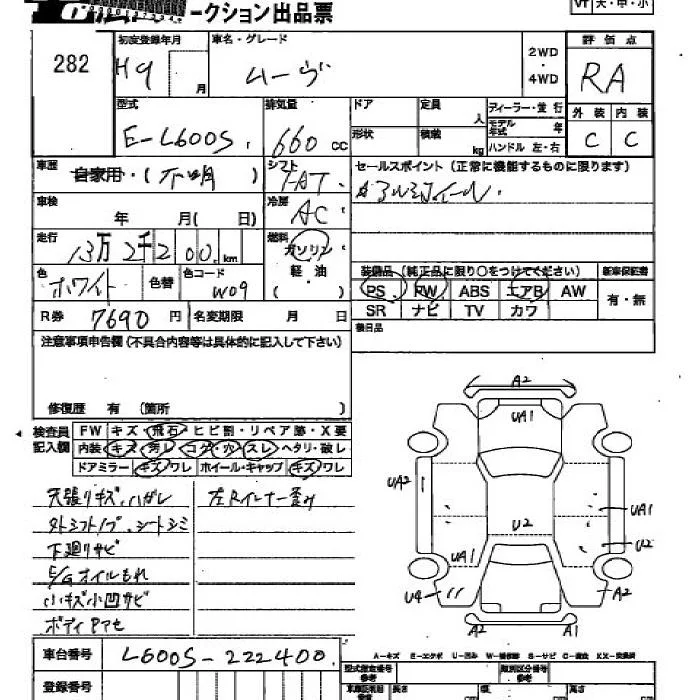 ークション出品票
VT 大・中・小
282
初度登録年月
H9 月
車名・グレード
ムーヴ
2WD
・
4WD
評価点
RA
型式
E-L600S
排気量
660 cc
ドア
定員 人
ディーラー・並行
モデル年式 年
ハンドル 左・右
形状
積載 kg
外装 内装
C C
車歴
自家用・(不明)
シフト
FAT
セールスポイント（正常に機能するものに限ります）
アルミホイール
車検
年 月( 日)
冷房
AC
走行
13万2千200km
燃料
ガソリン
軽・油
( )
色
ホワイト
色替
色コード
W09
装備品（純正品に限り○をつけてください）
新車保証書
PS PW ABS エアB AW
有・無
SR ナビ TV カワ
R券 7690円
名変期限 月 日
注意事項申告欄（不具合内容等は具体的に記入して下さい）
修復歴 有（箇所 ）
検査員
記入欄
FW キズ・飛石・ヒビ割・リペア跡・X要
内装 キズ・汚レ・コゲ・穴・スレ・ヘタリ・破レ
ドアミラー キズ・ワレ ホイール・キャップ キズ・ワレ
天張りキズ、ハガレ
左Rインナー歪み
外シフトノブ、シートシミ
下廻りサビ
E/Gオイルもれ
小キズ小凹サビ
ボディヤケアセ
A2
UA1
UA2
UA1
U2
U2
UA1
U4
A2
A2
A1
A-キズ E-エクボ U-凹み W-補修跡 S-サビ C-腐食 XX-交換済
車台番号 L600S-222400
型式指定番号
参考
類別区分番号
参考
登録番号
長さ
幅
高さ